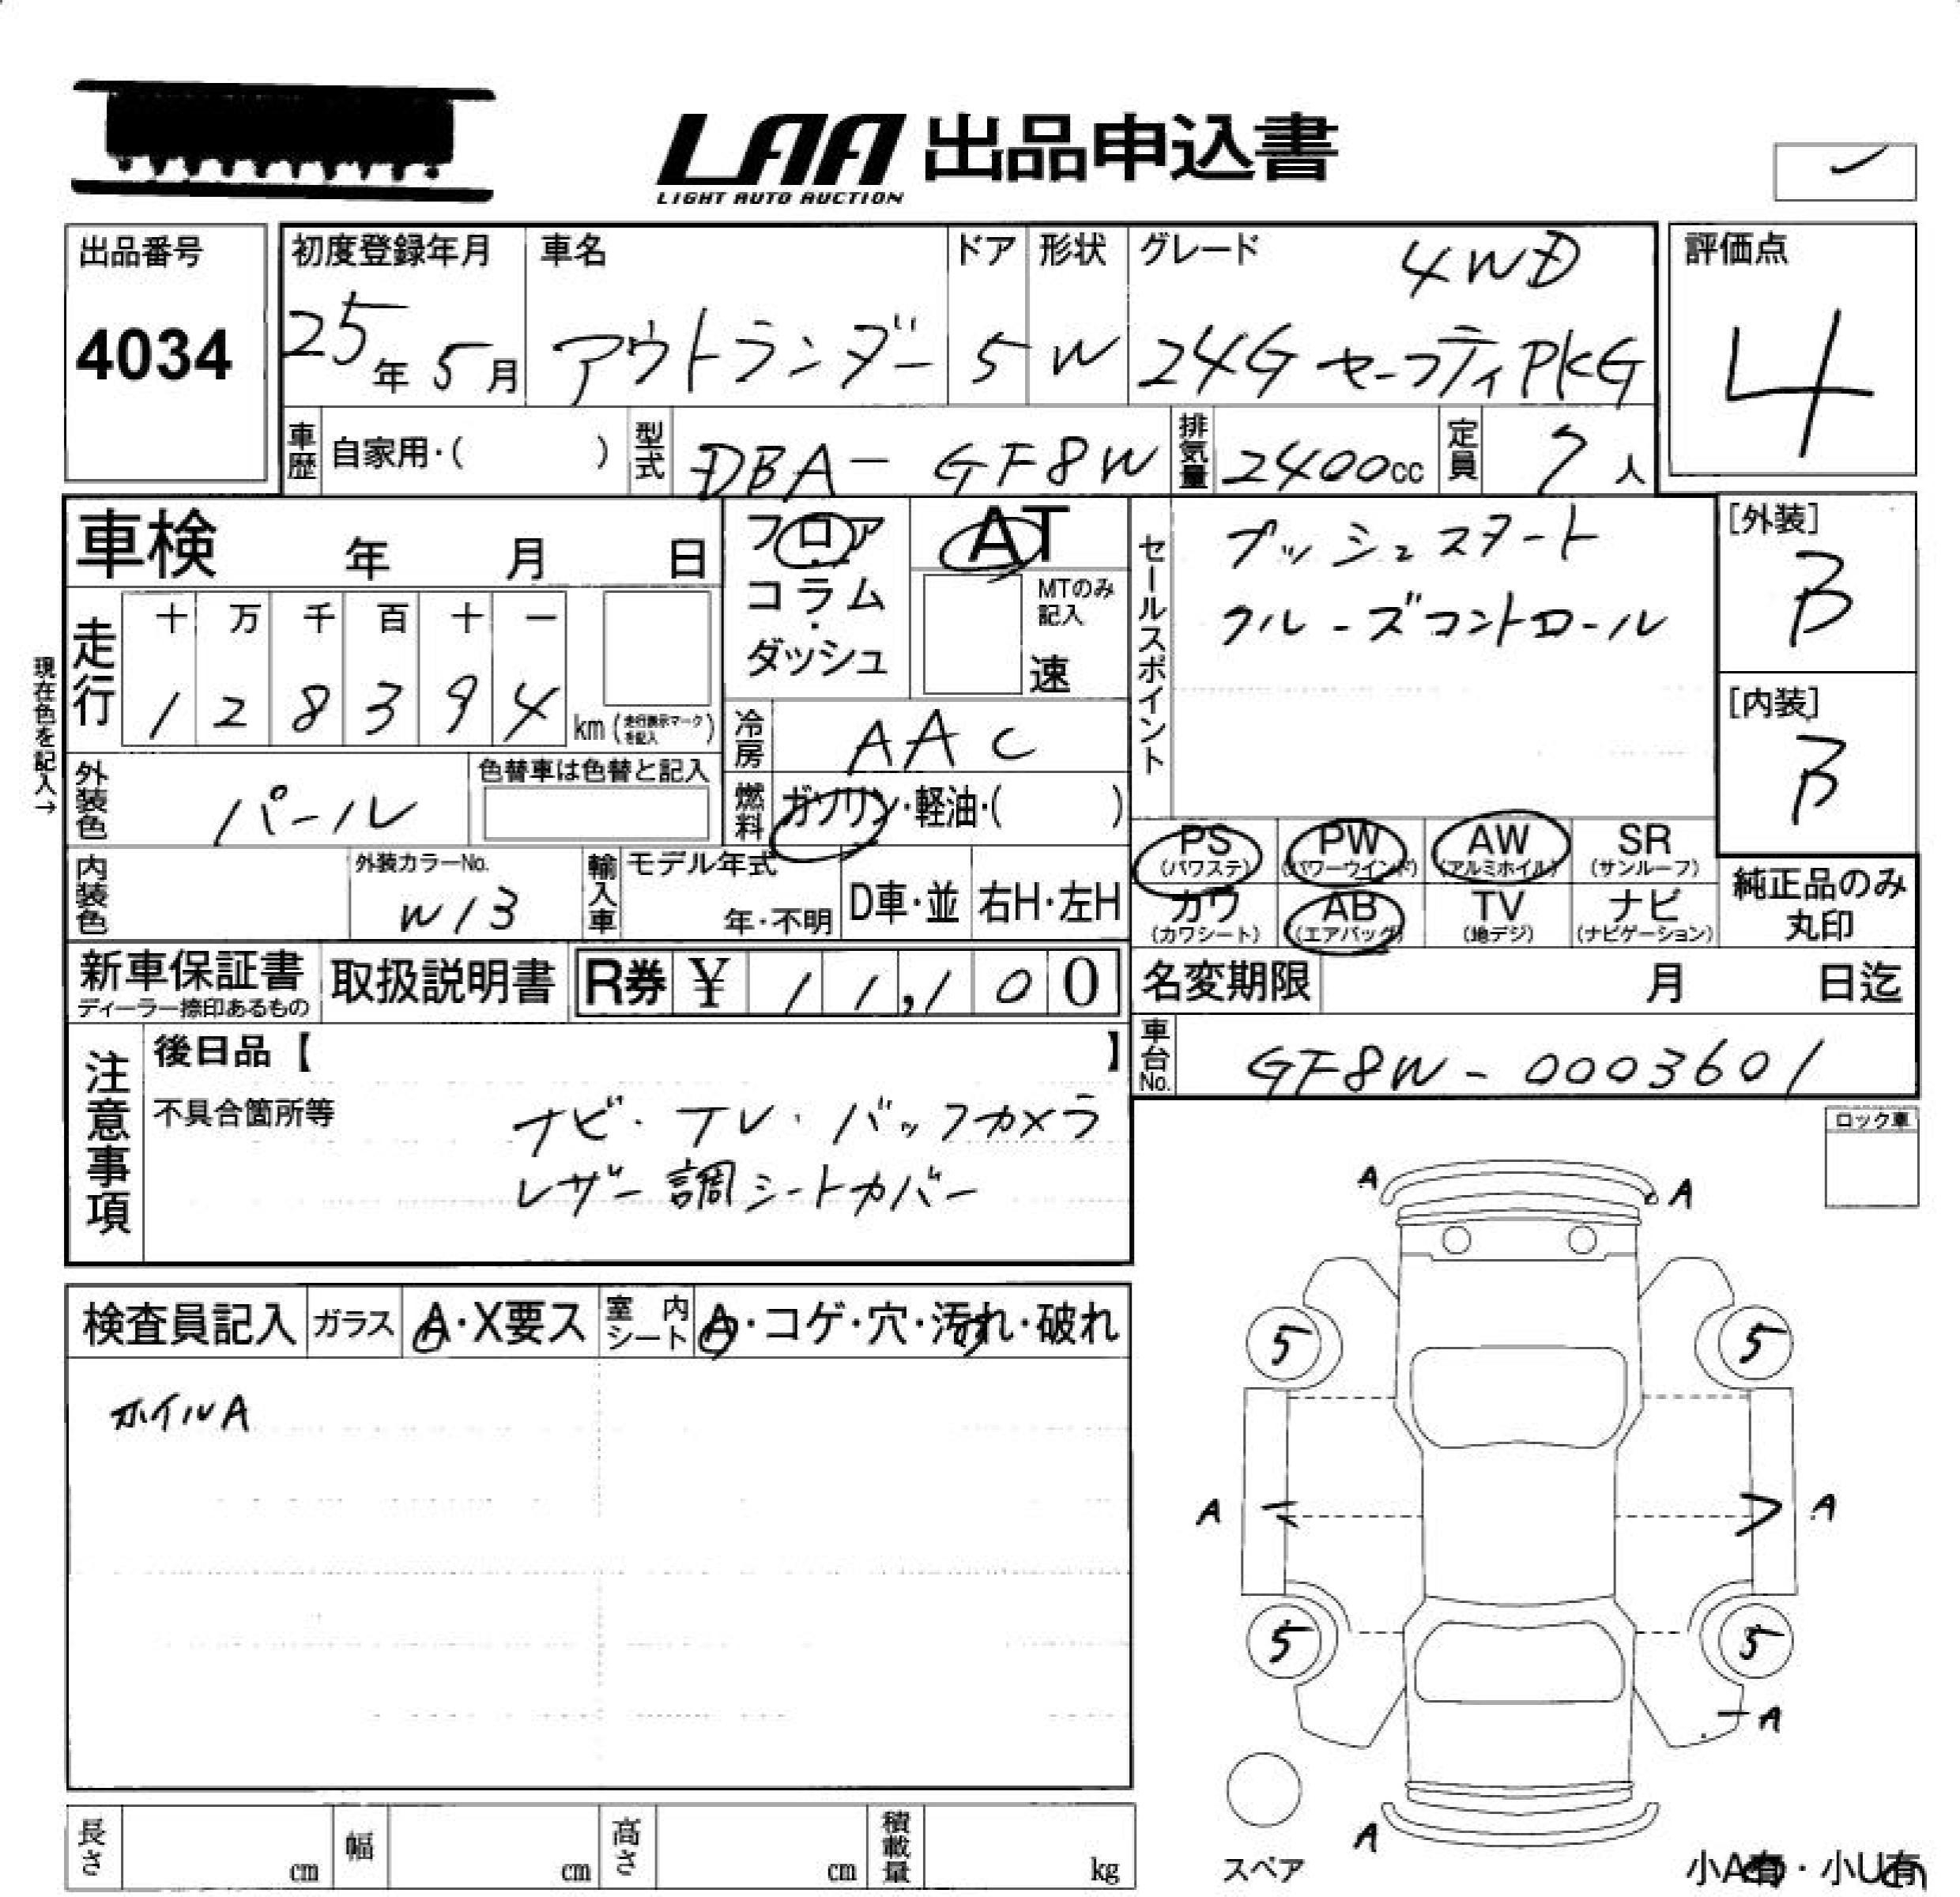 LAA 出品申込書
LIGHT AUTO AUCTION
出品番号
4034
初度登録年月
25年 5月
車名
アウトランダー
ドア
5
形状
W
グレード
4WD
24G セーフティPKG
評価点
4
車歴 自家用・( )
型式 DBA-GF8W
排気量 2400cc
定員 7人
車検 年 月 日
フロア・コラム・ダッシュ
AT
MTのみ記入
速
セールスポイント
プッシュスタート
クルーズコントロール
[外装]
B
[内装]
B
現在色を記入→
走行
十 万 千 百 十 一
1 2 8 3 9 4 km (走行表示マークを記入)
冷房 AAC
燃料 ガソリン・軽油・( )
外装色 パール
色替車は色替と記入
内装色
外装カラーNo.
W13
輸入車
モデル年式
年・不明
D車・並
右H・左H
PS (パワステ)
PW (パワーウインド)
AW (アルミホイル)
SR (サンルーフ)
カワ (カワシート)
AB (エアバッグ)
TV (地デジ)
ナビ (ナビゲーション)
純正品のみ
丸印
新車保証書
ディーラー捺印あるもの
取扱説明書
R券 ¥ 11,100
名変期限 月 日迄
車台No. GF8W-0003601
注意事項
後日品【 】
不具合箇所等
ナビ・TV・バックカメラ
レザー調シートカバー
ロック車
検査員記入
ガラス A・X要ス
室内シート A・コゲ・穴・汚れ・破れ
ホイルA
A A
5 5
A A
5 5
A
A
スペア
小A有・小U有
長さ cm
幅 cm
高さ cm
積載量 kg